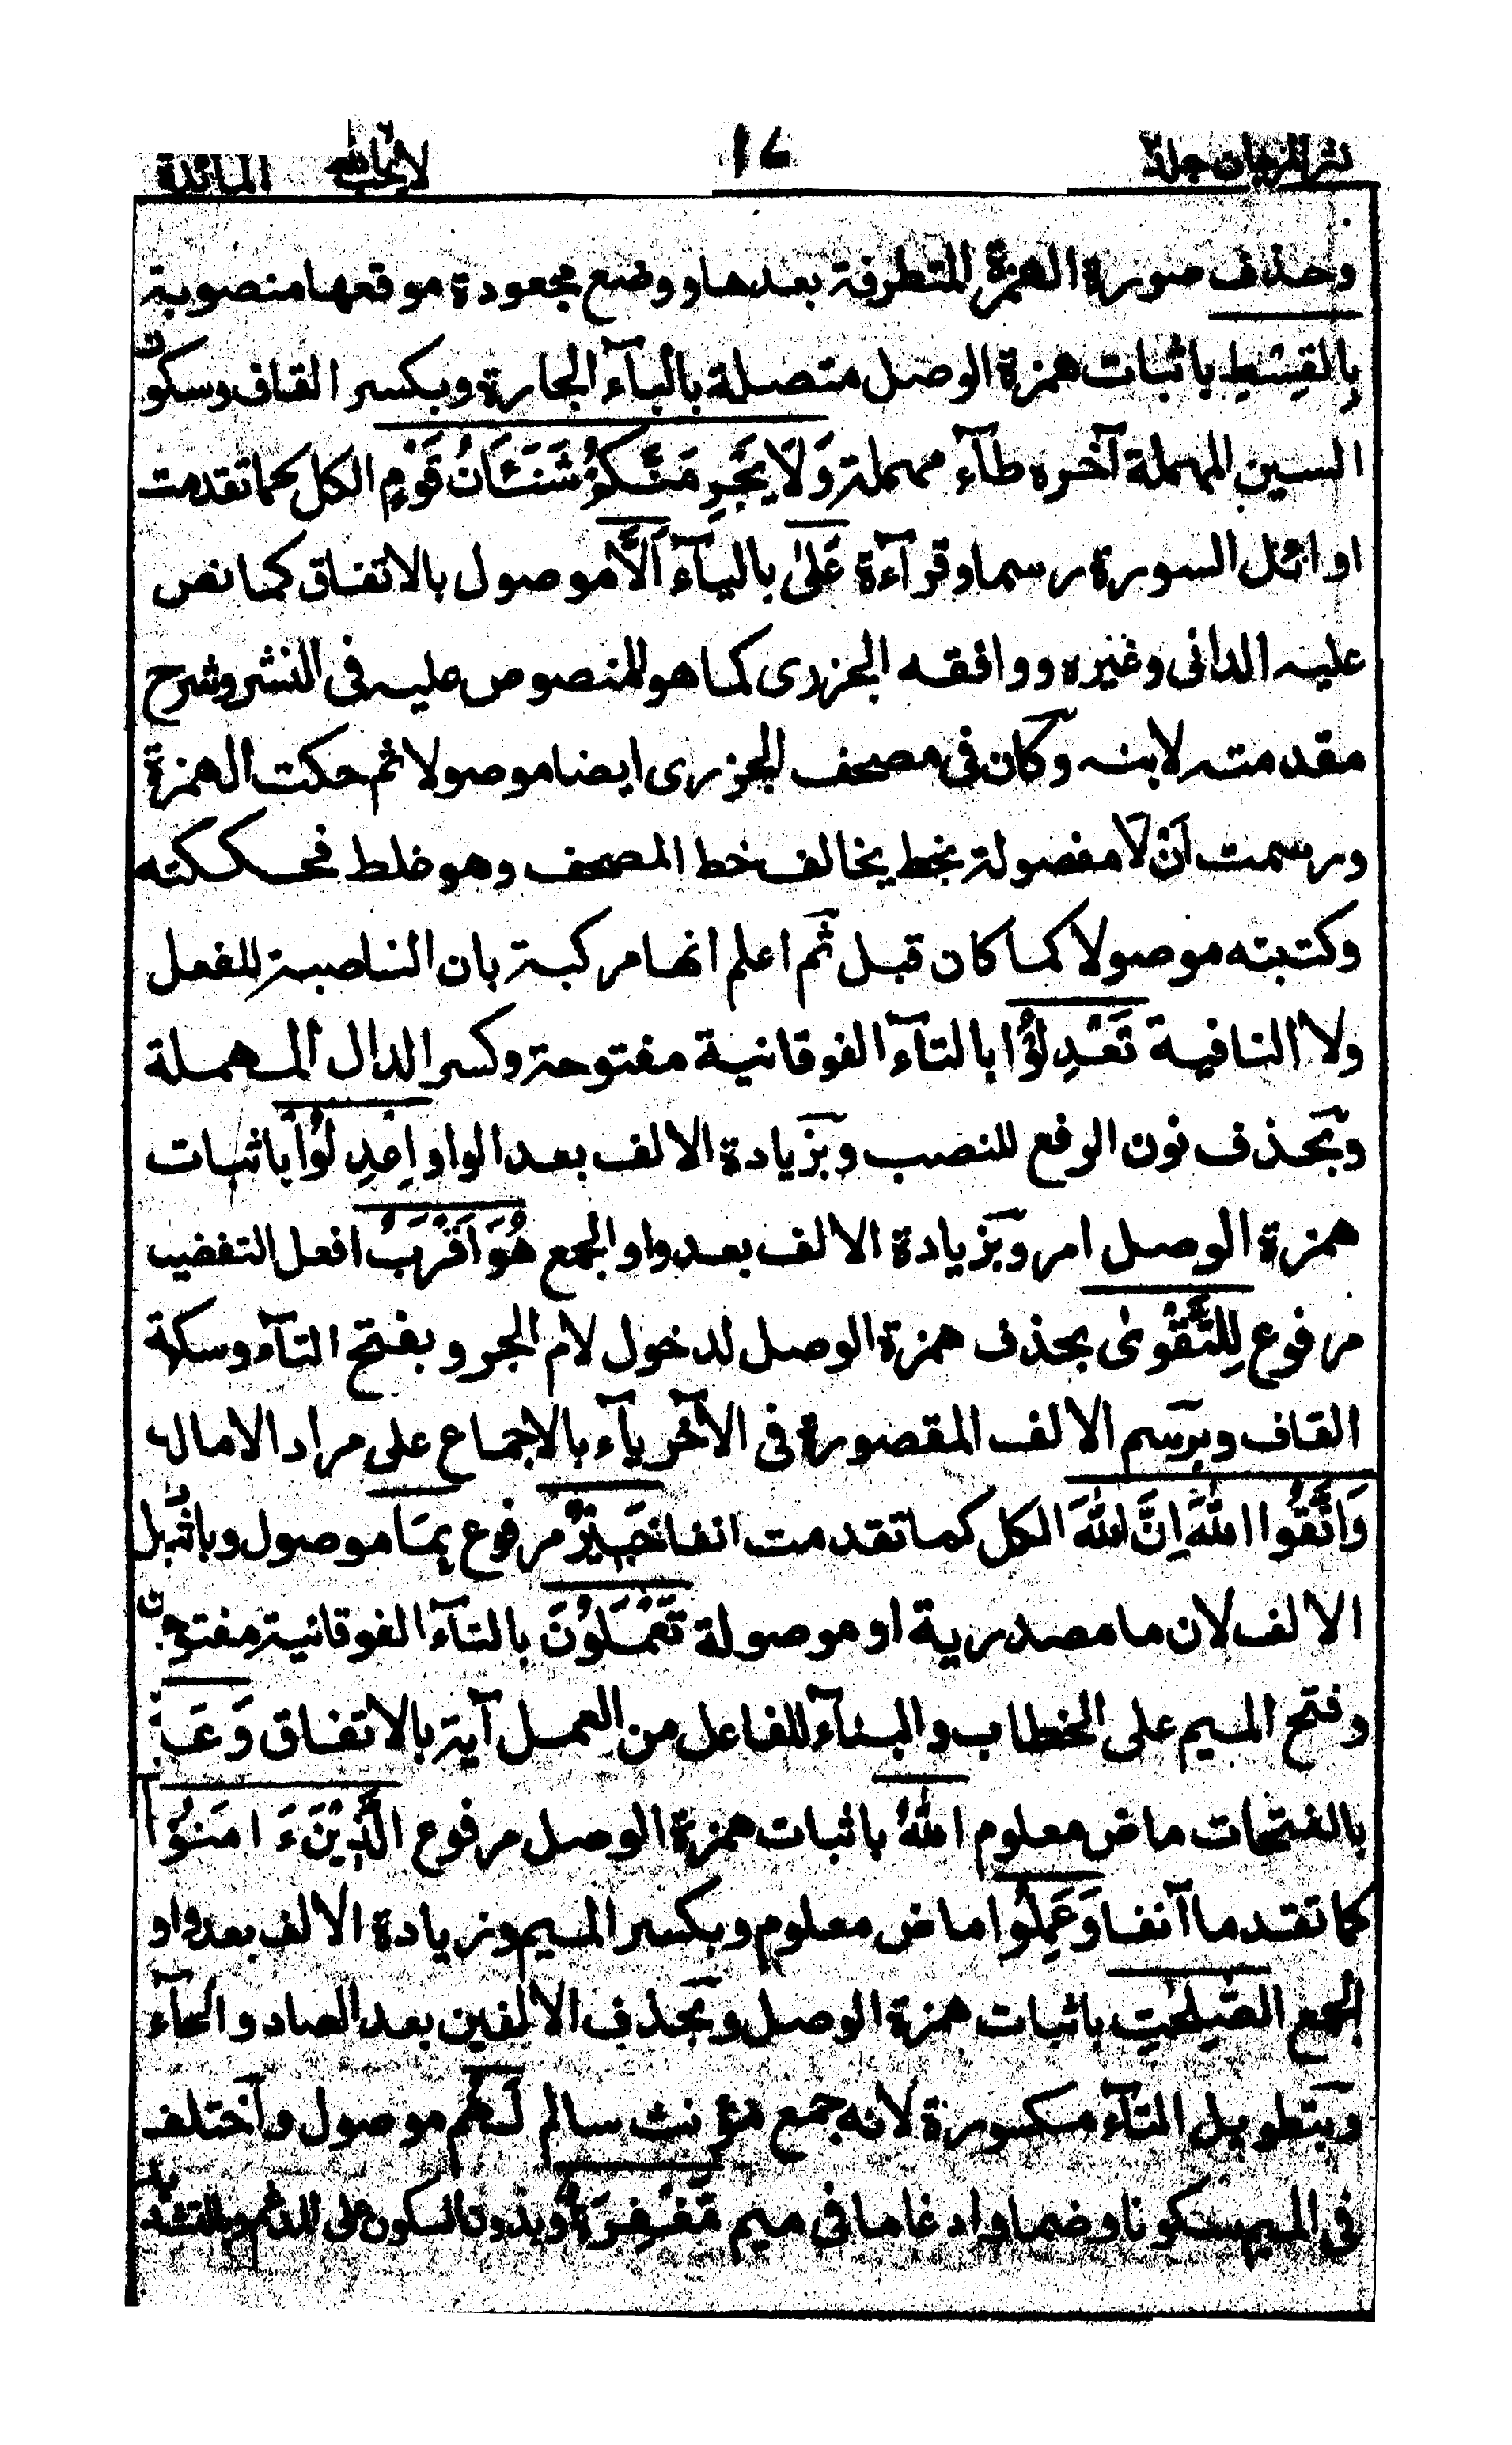 نثر المرجان جلد٢ ١٧ لا يحب الله المائدة
وحذف صورة الهمزة المتطرفة بعدها ووضع مجعودة موقعها منصوبة
بِالْقِسْطِ باثبات همزة الوصل متصلة بالبآء الجارة وبكسر القاف وسكون
السين المهملة آخره طآء مهملة وَلَا يَجْرِمَنَّكُمْ شَنَـَٔانُ قَوْمٍ الكل كما تقدمت
اوائل السورة رسما وقرآءة عَلٰى باليآء اَلَّا موصول بالاتفاق كما نص
عليه الدانى وغيره ووافقه الجزرى كما هو المنصوص عليه فى النشر وشرح
مقدمته لابنه وكان فى مصحف الجزرى ايضا موصولا ثم حكت الهمزة
ورسمت اَنْ لَا مفصولة بخط يخالف خط المصحف وهو غلط فحككته
وكتبته موصولا كما كان قبل ثم اعلم انها مركبة بان الناصبة للفعل
ولا النافية تَعْدِلُوْا بالتآء الفوقانية مفتوحة وكسر الدال المهملة
وبحذف نون الرفع للنصب وبزيادة الالف بعد الواو اِعْدِلُوْا باثبات
همزة الوصل امر وبزيادة الالف بعد واو الجمع هُوَ اَقْرَبُ افعل التفضيل
مرفوع لِلتَّقْوٰى بحذف همزة الوصل لدخول لام الجر وبفتح التآء وسكون
القاف وبرسم الالف المقصورة فى الآخر يآء بالاجماع على مراد الامالة
وَاتَّقُوا اللّٰهَ اِنَّ اللّٰهَ الكل كما تقدمت انفا خَبِيْرٌ مرفوع بِمَا موصول وباثبات
الالف لان ما مصدرية او موصولة تَعْمَلُوْنَ بالتآء الفوقانية مفتوحة
وفتح الميم على الخطاب والبنآء للفاعل من العمل آية بالاتفاق وَعَدَ
بالفتحات ماض معلوم اللّٰهُ باثبات همزة الوصل مرفوع الَّذِيْنَ ءَامَنُوْا
كما تقدما آنفا وَعَمِلُوا ماض معلوم وبكسر الميم وزيادة الالف بعد واو
الجمع الصّٰلِحٰتِ باثبات همزة الوصل وبحذف الالفين بعد الصاد والحآء
وبتطويل التآء مكسورة لانه جمع مؤنث سالم لَهُمْ موصول واختلف
فى الميم سكونا وضما وادغاما فى ميم مَّغْفِرَةٌ وبذوق السكون على المدغم وبالتشديد